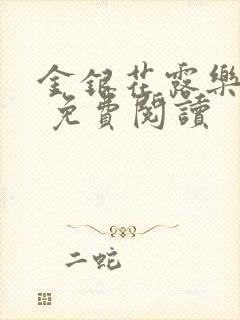 金銀花露樂
免費閱讀
二蛇